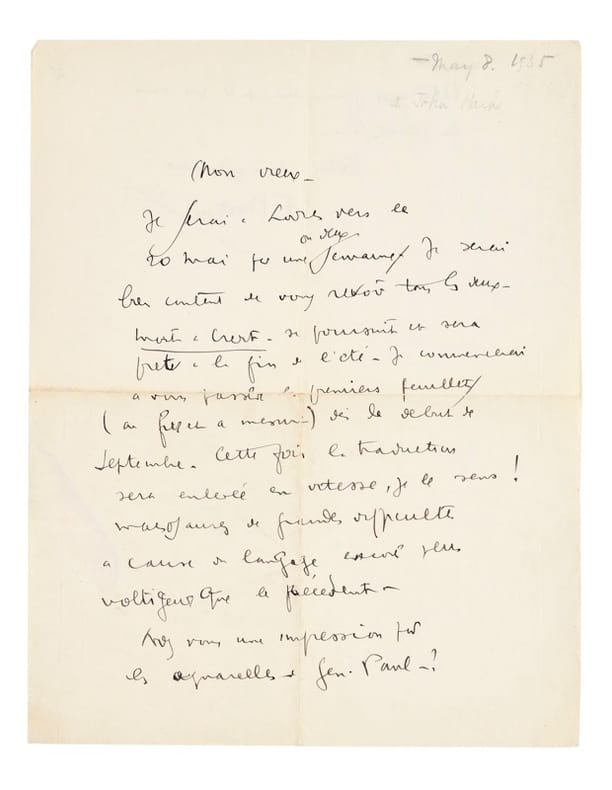 — May 8. 1935
à John Marks
Mon vieux —
Je serai à Londres vers le
20 mai pr une ou deux semaines. Je serai
bien content de vous revoir tous les deux —
Mort à Crédit — se poursuit et sera
prête à la fin de l'été — Je commencerai
à vous passer les premiers feuillets
(au fur et à mesure) dès le début de
Septembre. Cette fois la traduction
sera enlevée en vitesse, je le sens !
mais de grandes difficultés
à cause du langage encore plus
voltigeur que le précédent —
Avez vous une impression sur
les aquarelles de Gen. Paul — ?